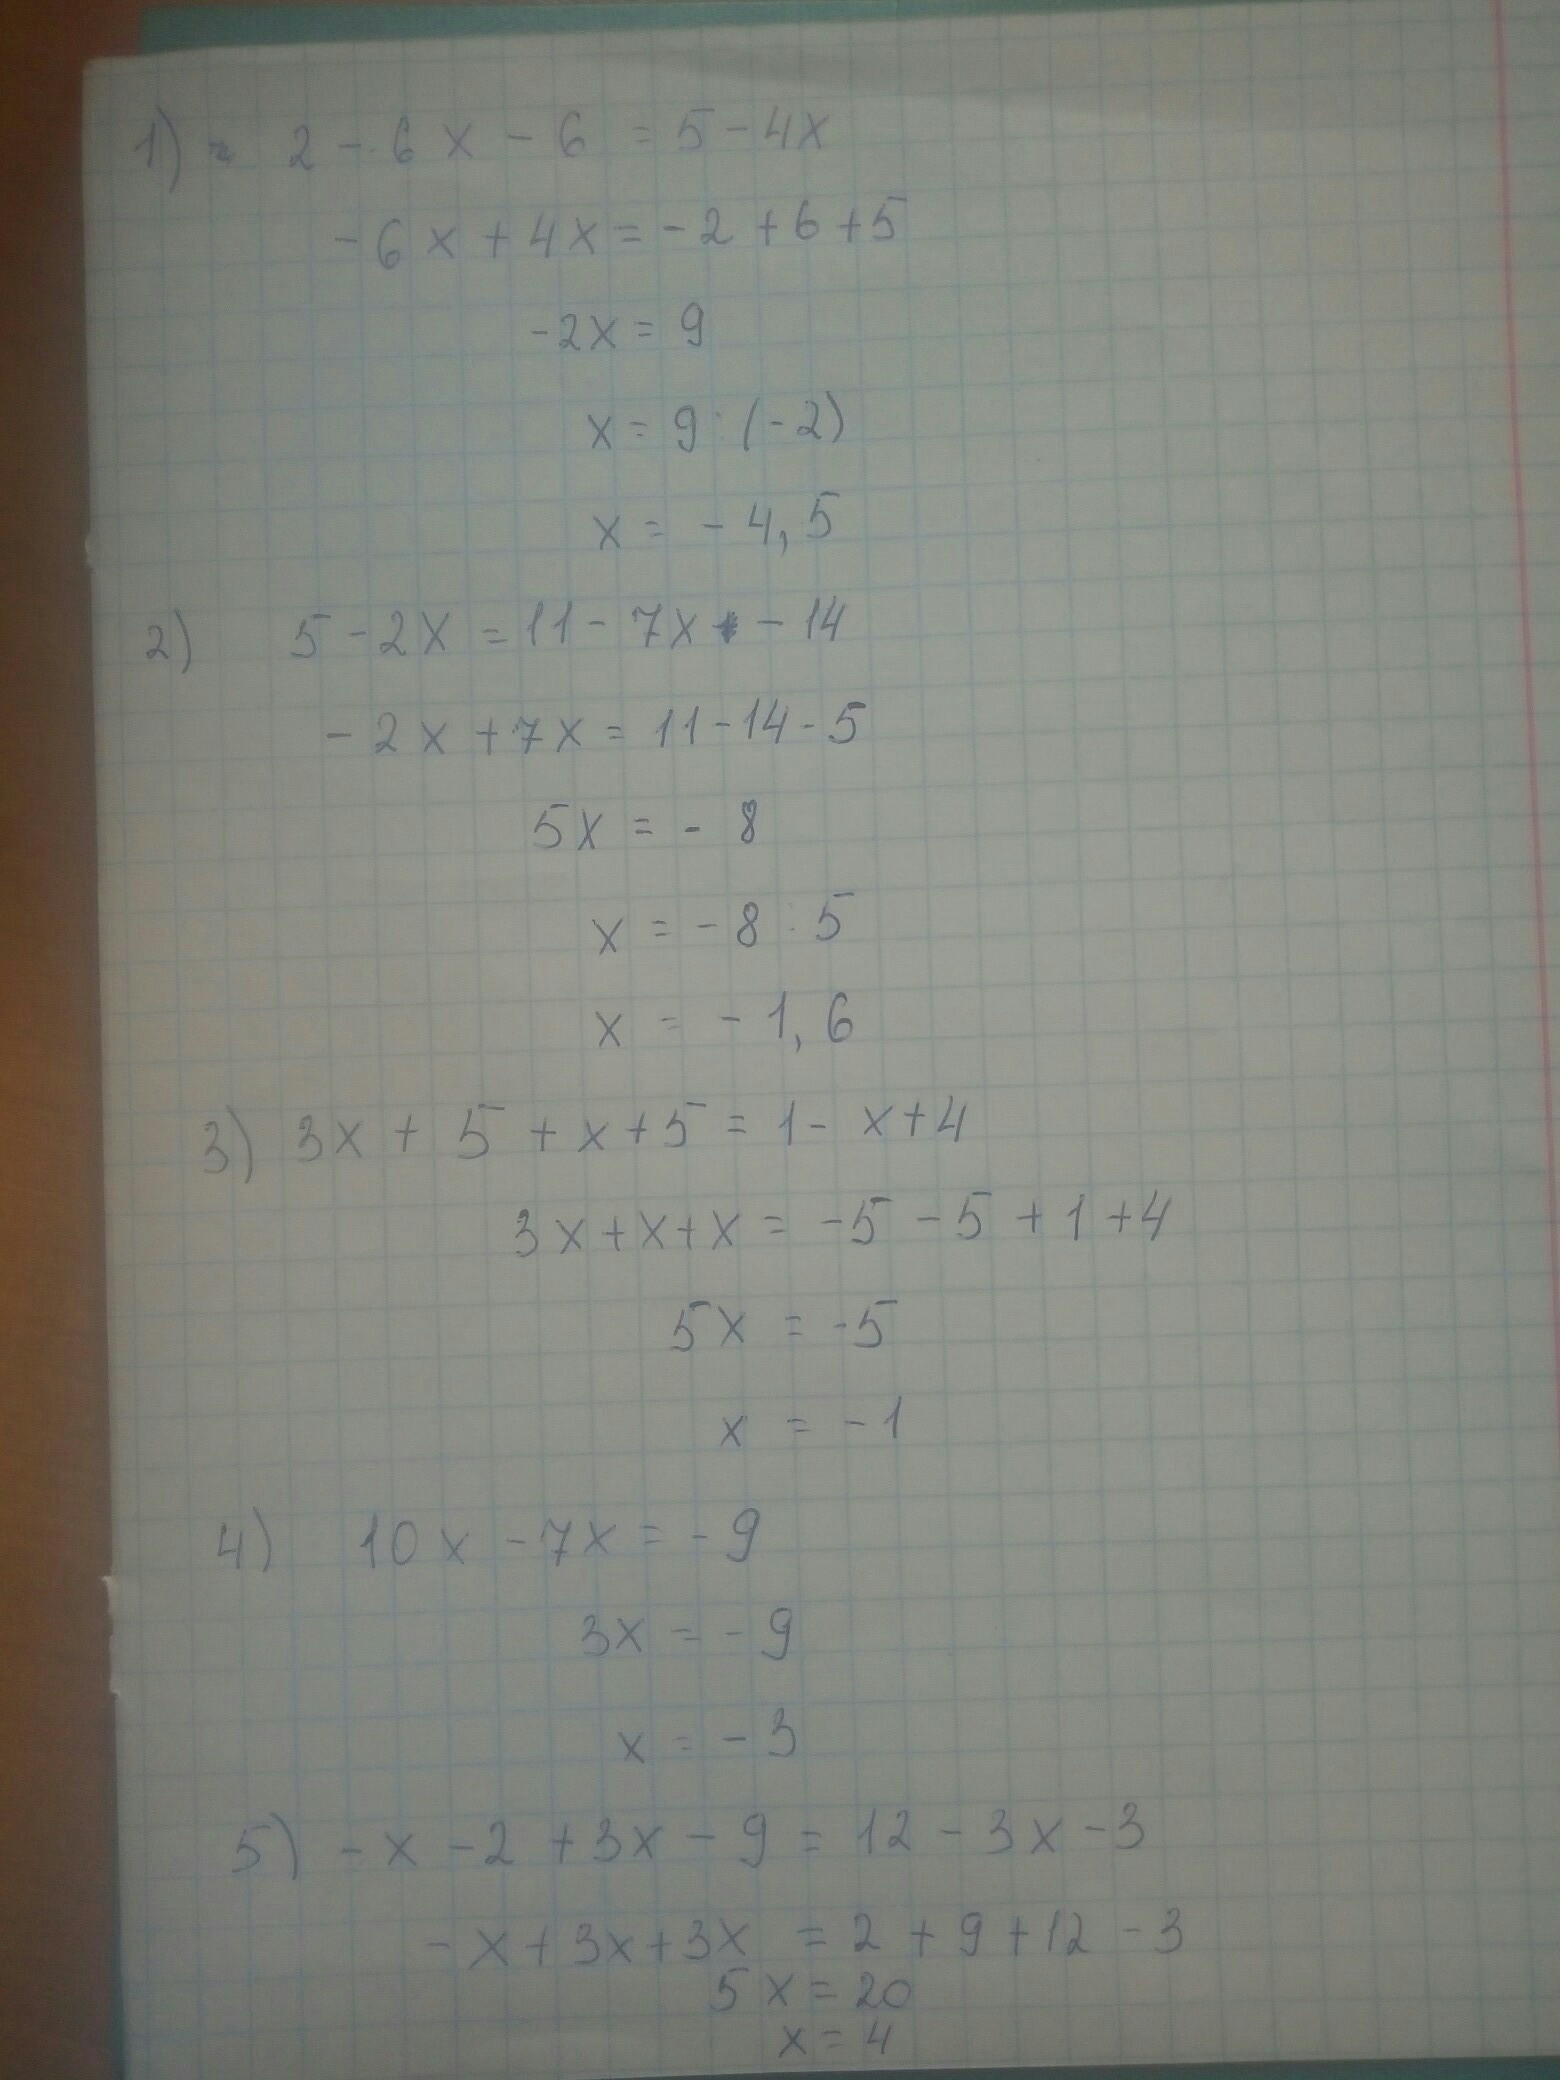 1) 2 - 6x - 6 = 5 - 4x
- 6x + 4x = - 2 + 6 + 5
-2x = 9
x = 9 : (-2)
x = - 4,5
2) 5 - 2x = 11 - 7x - 14
- 2x + 7x = 11 - 14 - 5
5x = - 8
x = - 8 : 5
x = - 1,6
3) 3x + 5 + x + 5 = 1 - x + 4
3x + x + x = -5 - 5 + 1 + 4
5x = -5
x = -1
4) 10x - 7x = - 9
3x = - 9
x = - 3
5) - x - 2 + 3x - 9 = 12 - 3x - 3
- x + 3x + 3x = 2 + 9 + 12 - 3
5x = 20
x = 4